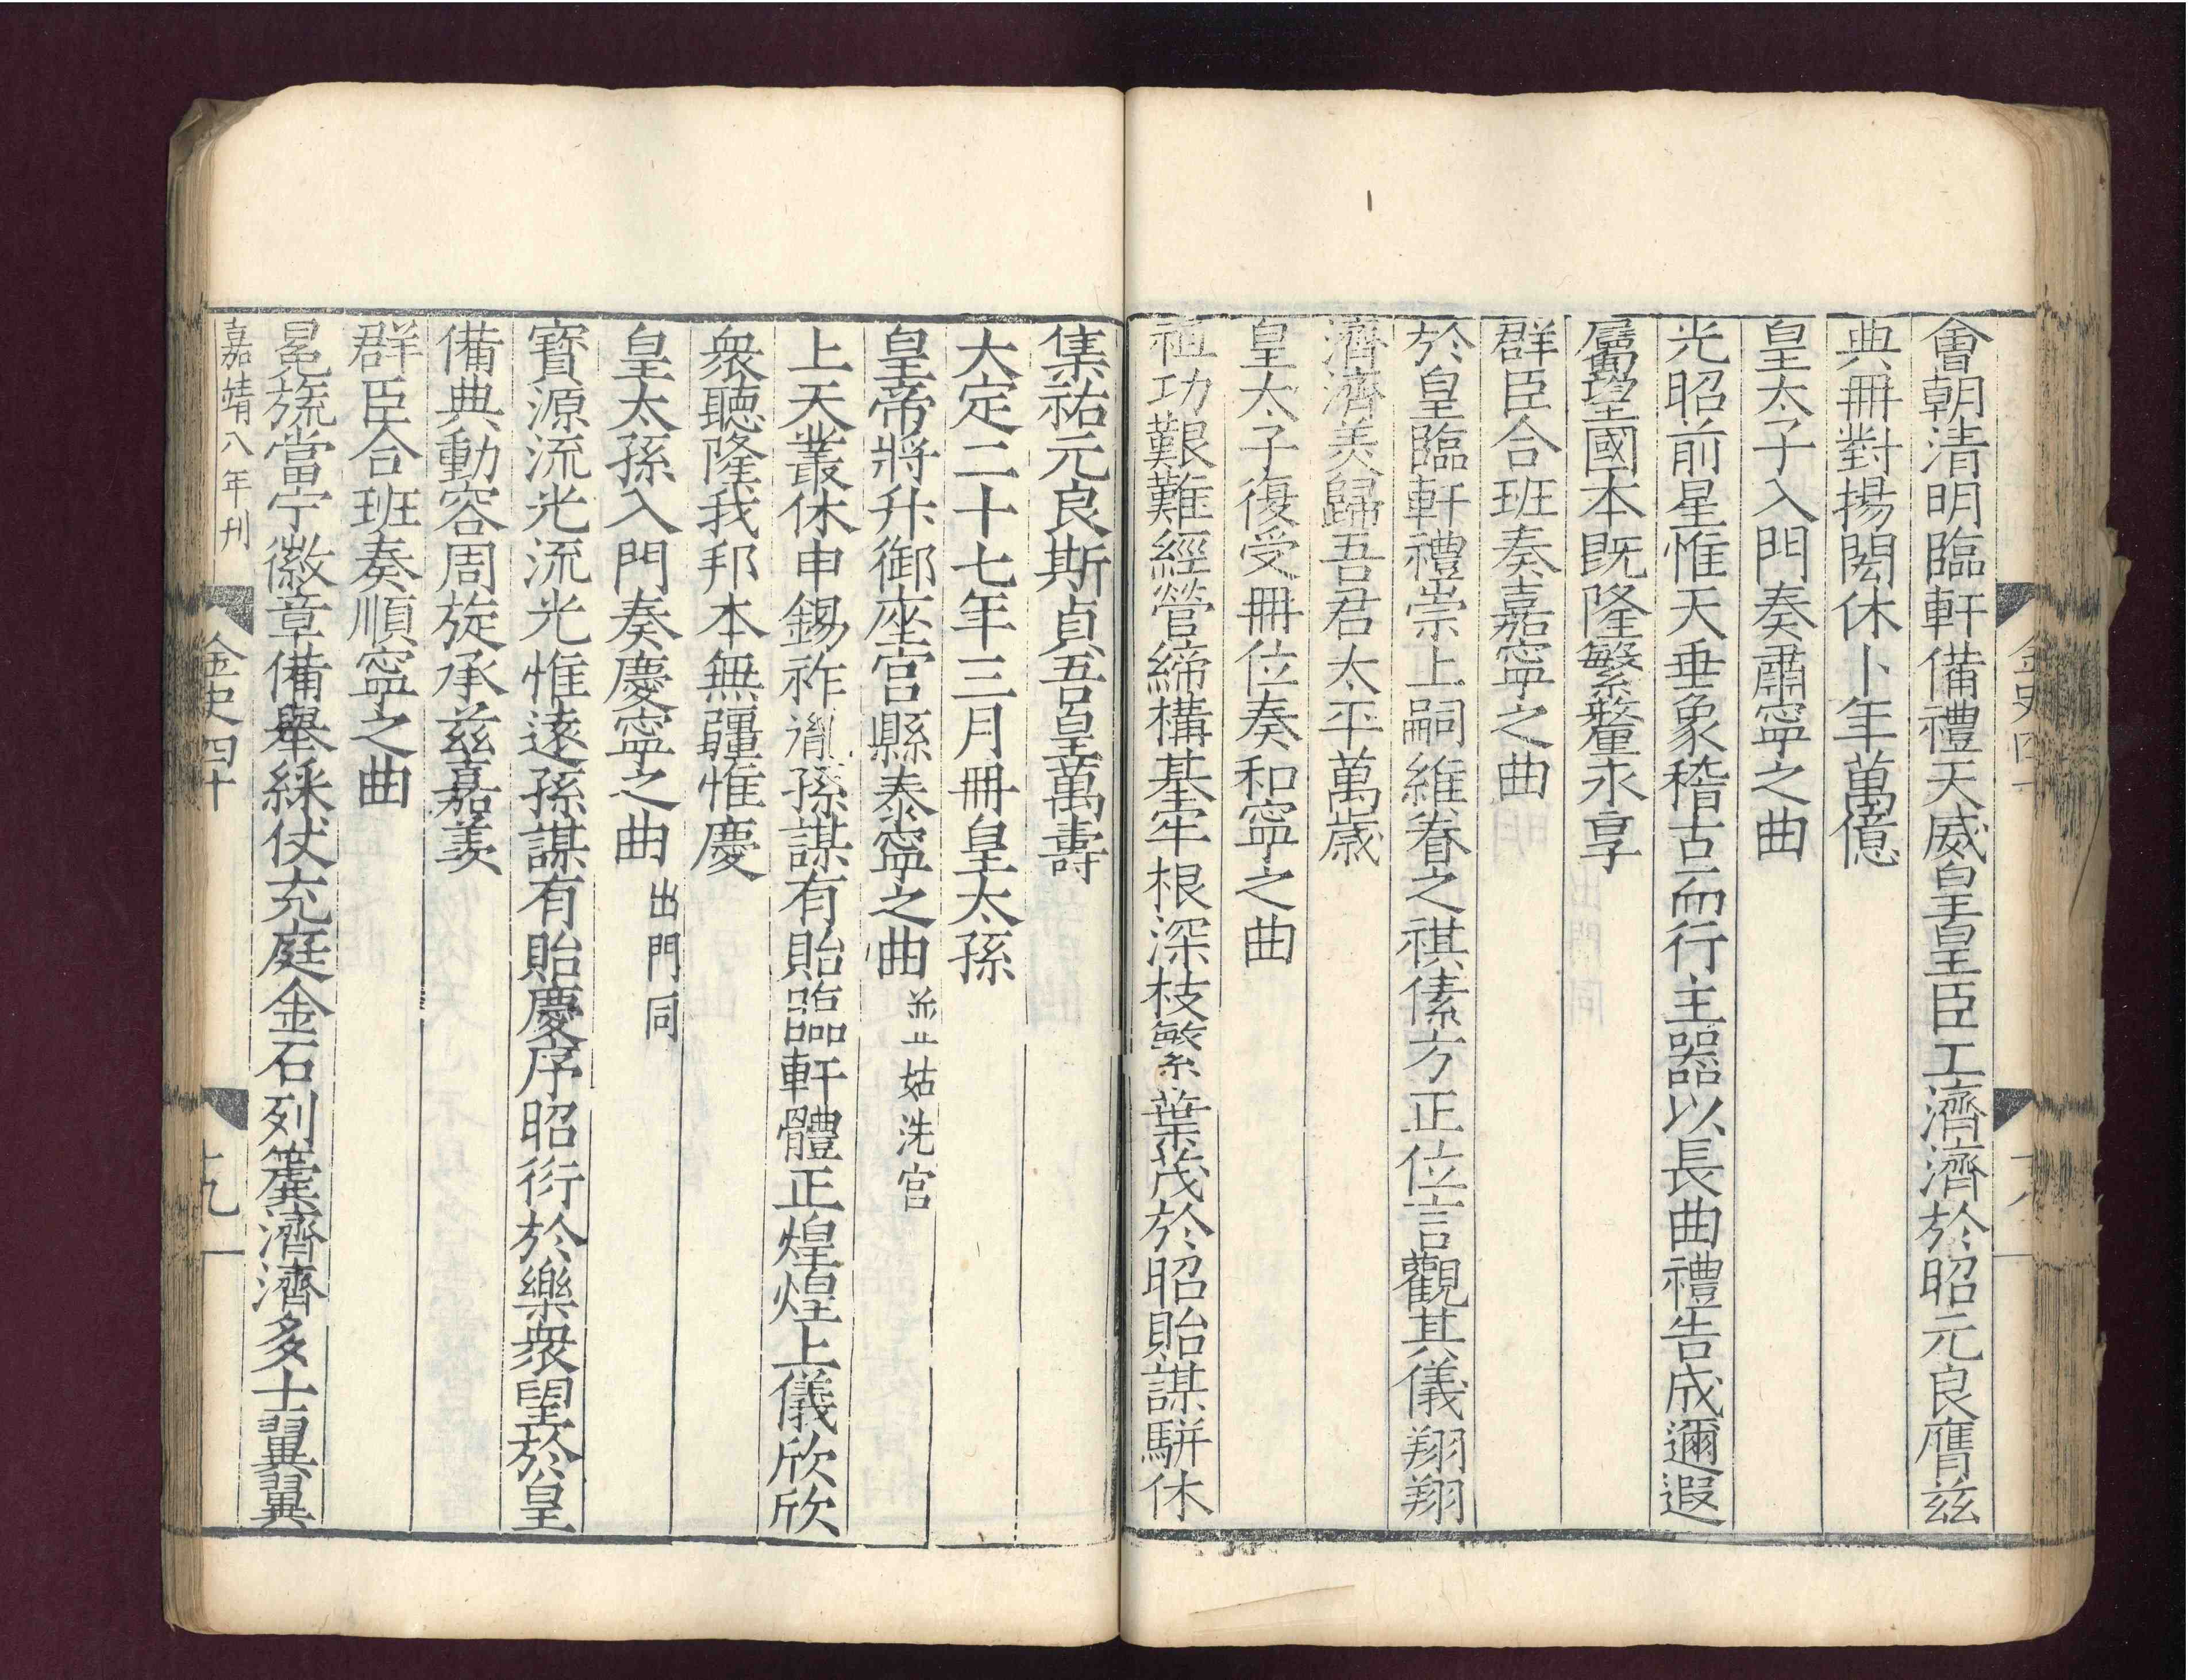 會朝清明臨軒備禮天威皇皇臣工濟濟於昭元良膺茲
典冊對揚閎休卜年萬億
皇太子入門奏肅寧之曲
光昭前星惟天垂象稽古而行主器以長曲禮告成邇遐
屬望國本既隆繁釐永享
群臣合班奏嘉寧之曲
於皇臨軒禮崇上嗣維眷之祺傃方正位言觀其儀翔翔
濟濟美歸吾君太平萬歲
皇太子復受冊位奏和寧之曲
祖功艱難經營締構基牢根深枝繁葉茂於昭貽謀駢休
集祐元良斯貞吾皇萬壽
大定二十七年三月冊皇太孫
皇帝將升御座宮縣泰寧之曲並止姑洗宮
上天叢休申錫祚胤孫謀有貽臨軒體正煌煌上儀欣欣
衆聽隆我邦本無疆惟慶
皇太孫入門奏慶寧之曲出門同
寶源流光流光惟遠孫謀有貽慶序昭衍於樂衆望於皇
備典動容周旋承茲嘉羨
群臣合班奏順寧之曲
冕旒當宁徽章備舉綵仗充庭金石列簴濟濟多士翼翼
嘉靖八年刊
金史四十
十九